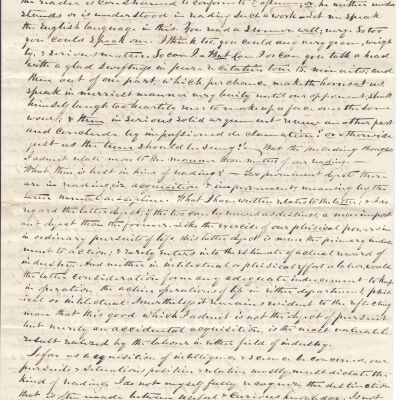 the reader is constrained to conform to
stands or is understood in reading such a work - let me speak
the English language in this. You read a Sermon well; very. So too
you could speak one. I think too, you could any very grave, weigh-
ty, & serious matter. So can I. But can I or can you talk to a head
with a glad swiftness in pure for 15 minutes; and
then out of our part, which perchance make the horse at us
speak in merriest manner very until our opponent shall
himself laugh too heartily even to make up a face over the same
work; & then in serious solid argument review another part
and conclude by impassioned declamation? or otherwise
just as the tune should be sung? But the preceding thoughts
I admit relate more to the manner than matter of our reading.
What then is best in kind of reading? Two prominent objects there
are in reading, viz acquisition & improvement; meaning by the
latter mental discipline. What I have written relates to the latter; & I do
regard the latter object, if the two can be viewed as distinct, a more import-
ant object than the former. Like the exercise of our physical powers in
in ordinary pursuits of life this latter object is never the primary induce-
ment to action; & rarely enters into the estimate of actual reward of
industry. And neither in intellectual or physical effort or labor would
the latter consideration form any adequate inducement to keep
in operation the active operations of life in either department physi-
cal or intellectual. Nevertheless it remains evident to the reflecting
man that this good which I admit is not the object of pursuit
but merely an accidental acquisition, is the most valuable
result realized by the labours in either field of industry.
So far as acquisition of intelligence & science be concerned, our
pursuits & situations position & relation mostly must dictate the
kind of reading. I do not myself fully recognize the distinction
that is often made between useful & curious knowledge. Is not